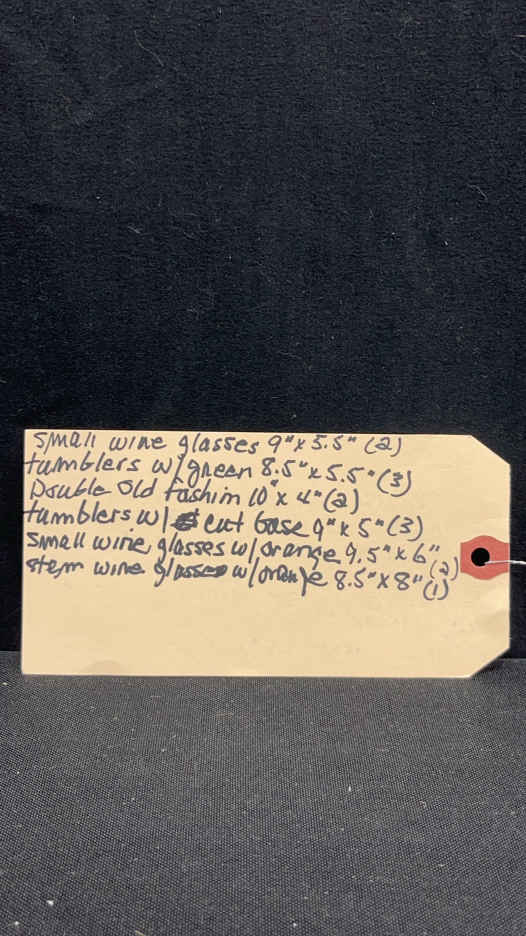 small wine glasses 9"x5.5" (2)
tumblers w/green 8.5"x5.5" (3)
Double Old Fashin 10"x4" (2)
tumblers w/ cut base 9"x5" (3)
small wine glasses w/orange 9.5"x6" (2)
stem wine glasses w/orange 8.5"x8" (1)